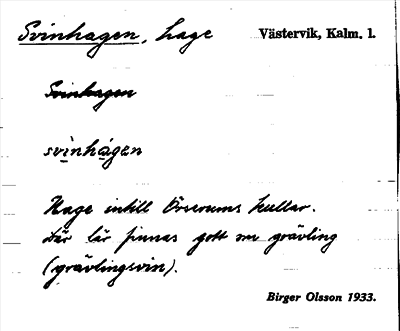 Svinhagen, hage Västervik, Kalm. l.
Svinhagen
svinhágen
Hage intill Örserums kullar.
Där lär finnas gott om grävling
(grävlingsvin).
Birger Olsson 1933.